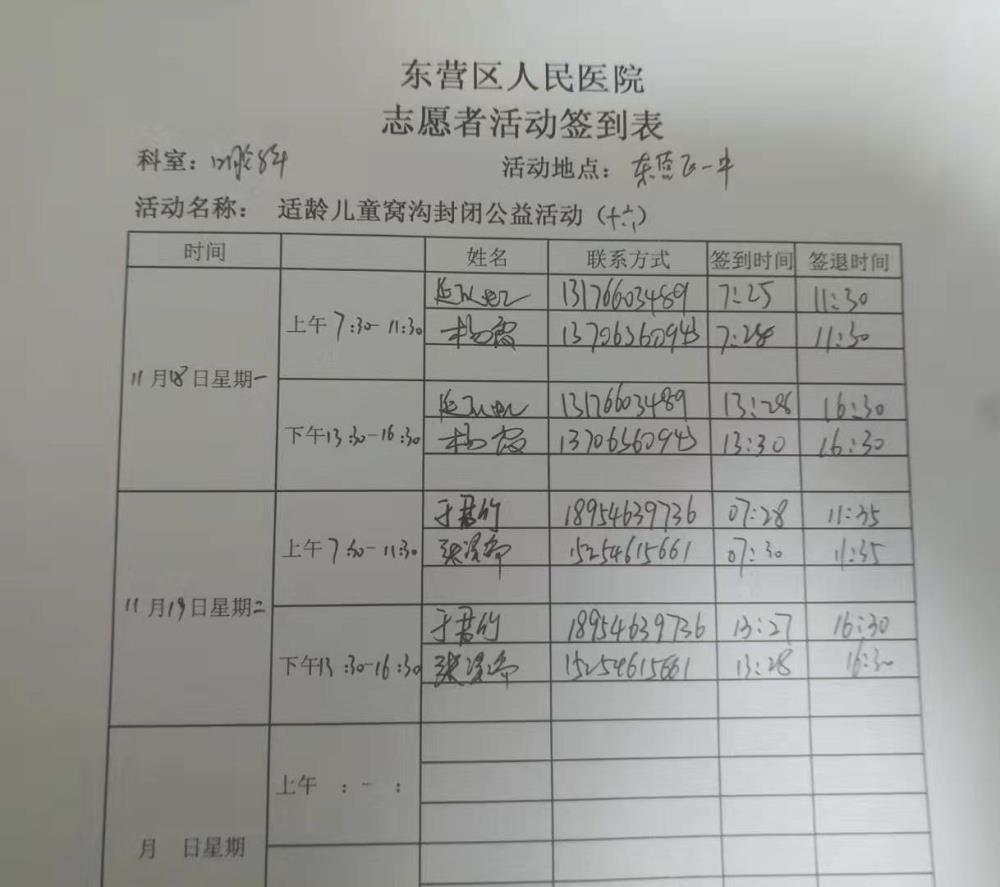 东营区人民医院
志愿者活动签到表
科室：口腔科 活动地点：东营区一中
活动名称： 适龄儿童窝沟封闭公益活动（十六）
时间 姓名 联系方式 签到时间 签退时间
11月18日星期一 上午 7:30-11:30 13176603489 7:25 11:30
杨霞 13706360943 7:28 11:30
下午13:30-16:30 13176603489 13:28 16:30
杨霞 13706360943 13:30 16:30
11月19日星期二 上午 7:30-11:30 于君竹 18954639736 07:28 11:35
15254615661 07:30 11:35
下午13:30-16:30 于君竹 18954639736 13:27 16:30
15254615661 13:28 16:30
月 日星期 上午 : - :